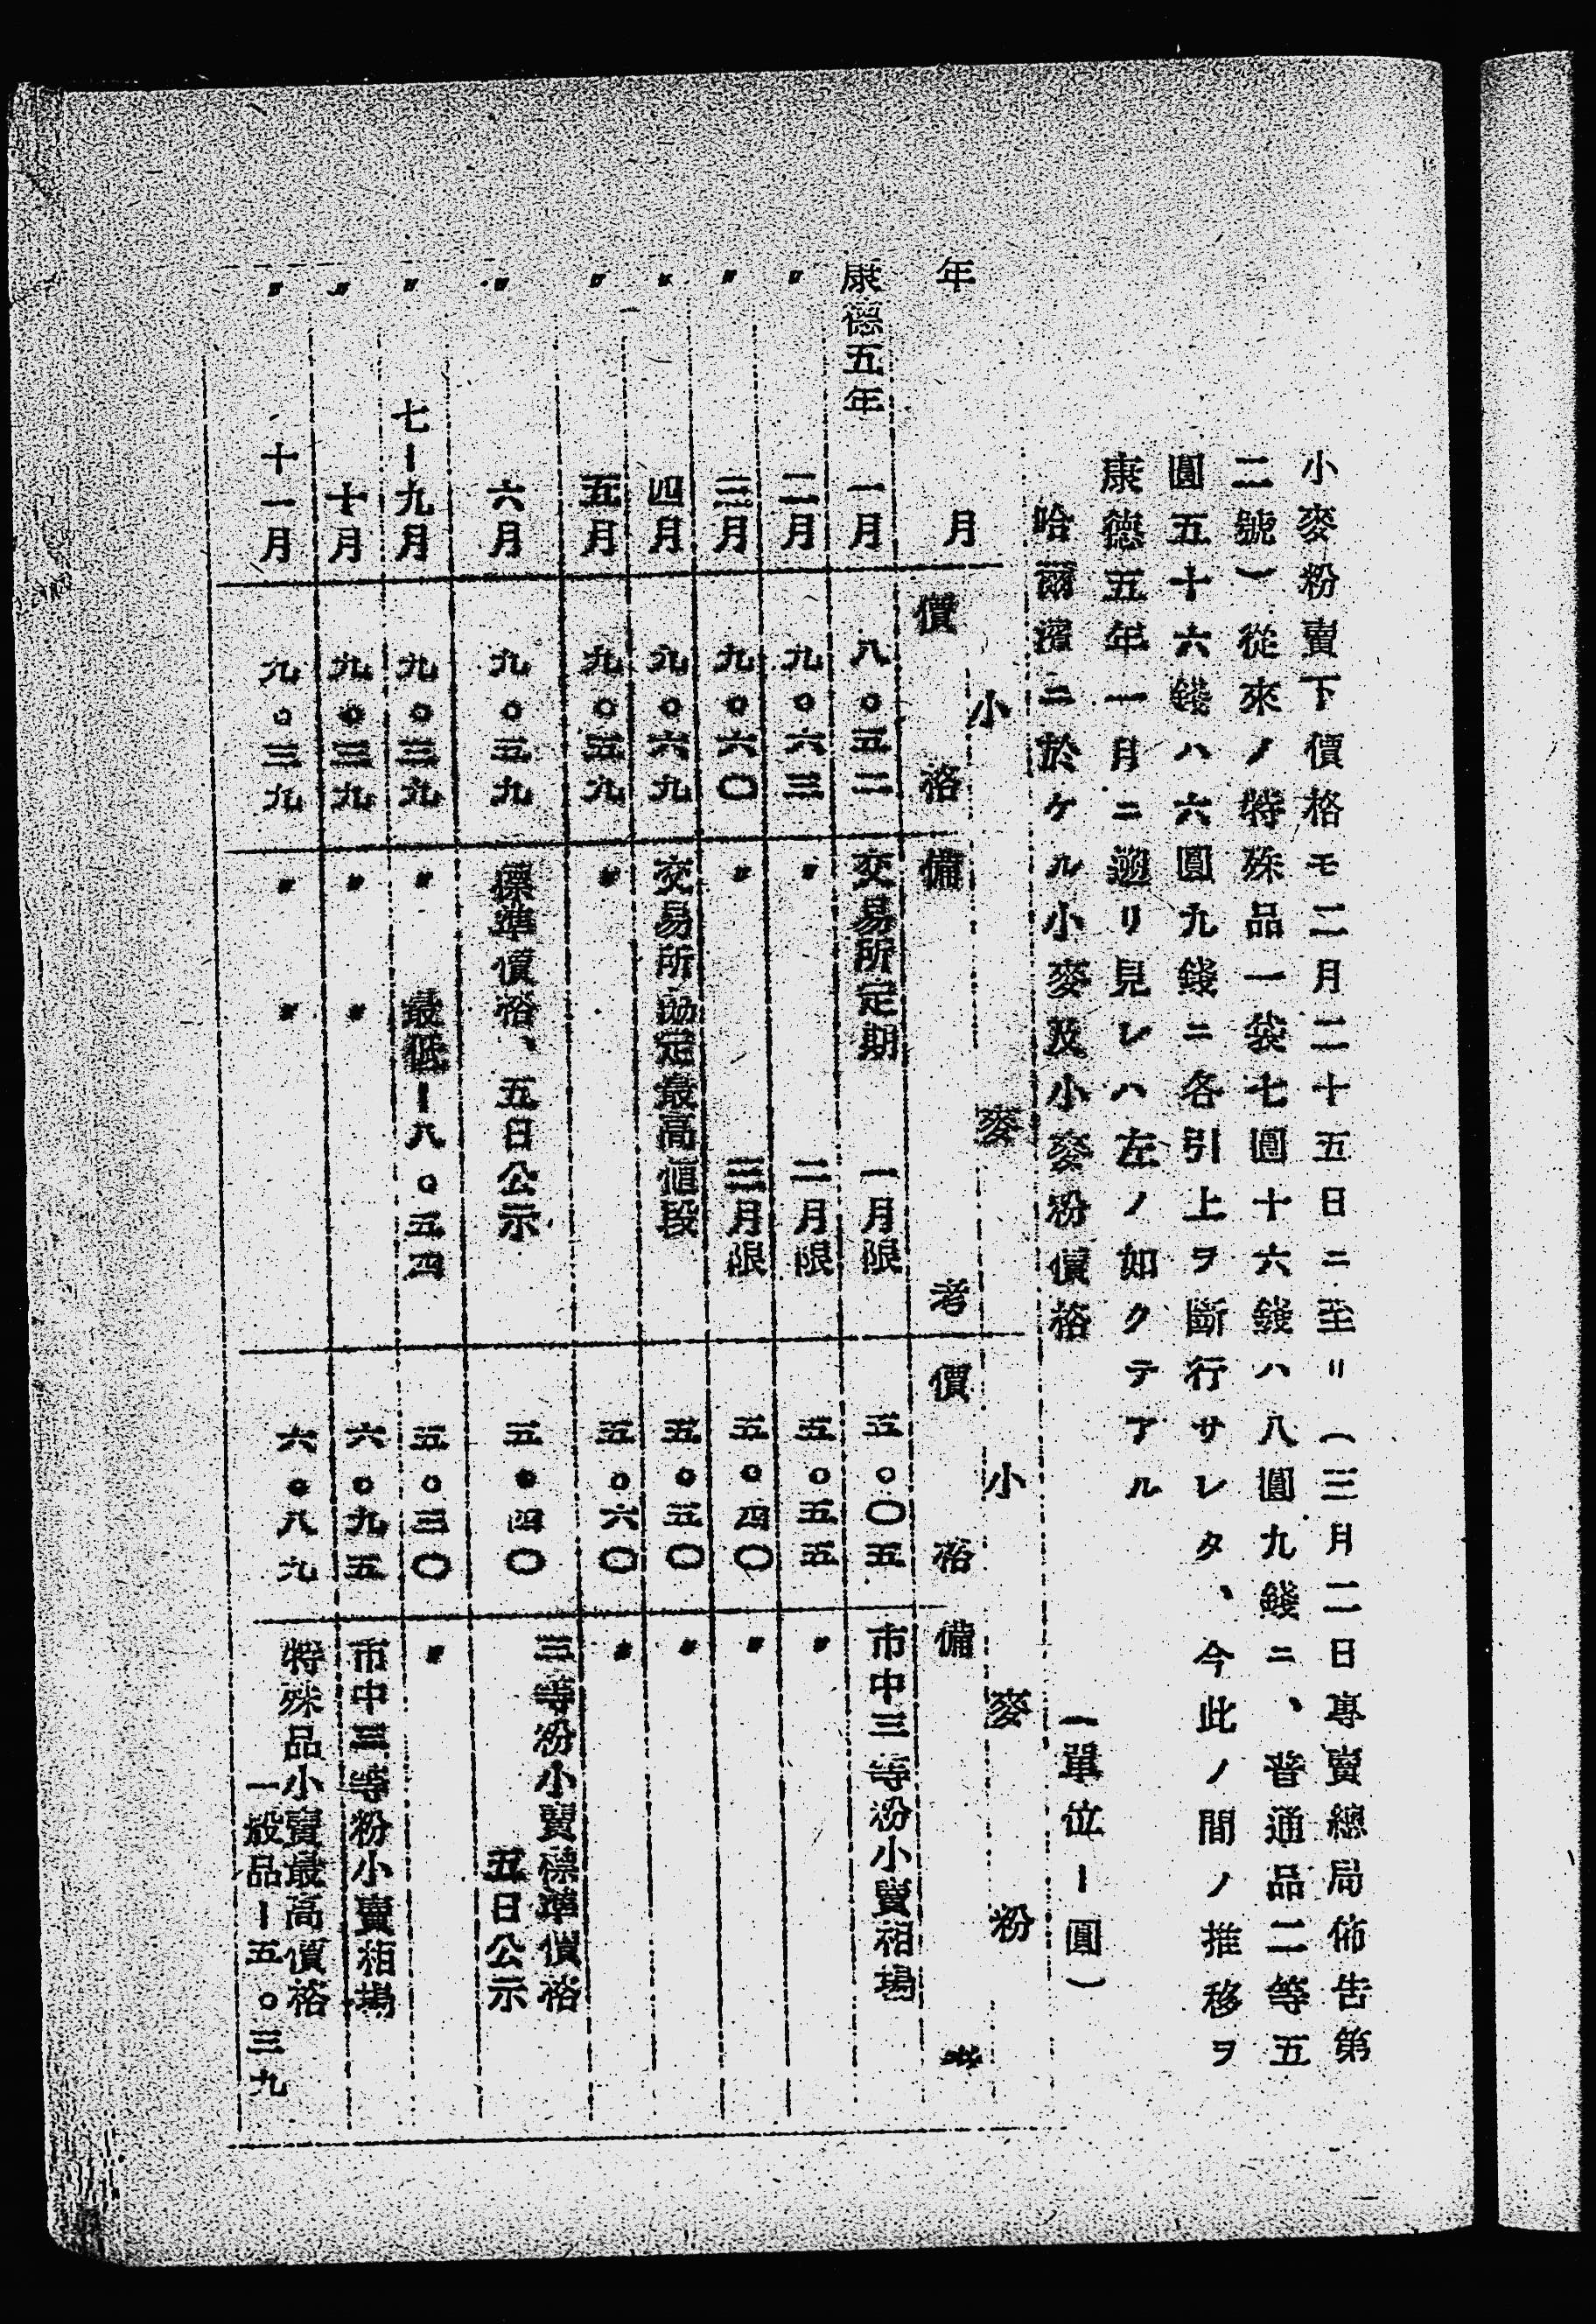 小麥粉賣下價格モ二月二十五日ニ至リ(三月二日專賣總局佈告第
二號)從來ノ特殊品一袋七圓十六錢ハ八圓九錢ニ、普通品二等五
圓五十六錢ハ六圓九錢ニ各引上ヲ斷行サレタ、今此ノ間ノ推移ヲ
康德五年一月ニ遡リ見レハ左ノ如クテアル
哈爾濱ニ於ケル小麥及小麥粉價格 (單位ー圓)
小麥 小麥粉
年月 價格 備考 價格 備考
康德五年 一月 八。五二 交易所定期 一月限 五。〇五 市中三等粉小賣相場
〃 二月 九。六三 〃 二月限 五。五五 〃
〃 三月 九。六〇 〃 三月限 五。四〇 〃
〃 四月 九。六九 交易所協定最高値段 五。五〇 〃
〃 五月 九。五九 〃 五。六〇 〃
〃 六月 九。五九 標準價格、五日公示 五。四〇 三等粉小賣標準價格
五日公示
〃 七ー九月 九。三九 〃 最低ー八。五四 五。三〇 〃
〃 十月 九。三九 〃 〃 六。九五 市中三等粉小賣相場
〃 十一月 九。三九 〃 〃 六。八九 特殊品小賣最高價格
一般品ー五。三九